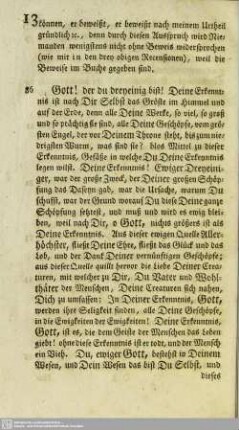 können, er beweißt, er beweißt nach meinem Urtheil
gründlich ꝛc., denn durch diesen Ausspruch wird Nie-
manden wenigstens nicht ohne Beweis widersprochen
(wie mir in den drey obigen Recensionen), weil die
Beweise im Buche gegeben sind.
Gott! der du dreyeinig bist! Deine Erkennt-
nis ist nach Dir Selbst das Gröste im Himmel und
auf der Erde, denn alle Deine Werke, so viel, so groß
und so prächtig sie sind, alle Deine Geschöpfe, vom grös-
sten Engel, der vor Deinem Throne steht, bis zum nie-
drigsten Wurm, was sind sie? blos Mittel zu dieser
Erkenntnis, Gefäße in welche Du Deine Erkenntnis
legen willst. Deine Erkenntnis! Ewiger Dreyeini-
ger, war der große Zweck, der Deiner großen Schöp-
fung das Daseyn gab, war die Ursache, warum Du
schufst, war der Grund worauf Du diese Deine ganze
Schöpfung setztest, und muß und wird es ewig blei-
ben, weil nach Dir, o Gott, nichts größers ist als
Deine Erkenntnis. Aus dieser ewigen Quelle Aller-
höchster, fließt Deine Ehre, fließt das Glück und das
Lob, und der Dank Deiner vernünftigen Geschöpfe;
aus dieser Quelle quillt hervor die Liebe Deiner Crea-
turen, mit welcher zu Dir, Du Vater und Wohl-
thäter der Menschen, Deine Creaturen sich nahen,
Dich zu umfassen: In Deiner Erkenntnis, Gott,
werden ihre Seligkeit finden, alle Deine Geschöpfe,
in die Ewigkeiten der Ewigkeiten! Deine Erkenntnis,
Gott, ist es, die dem Geiste der Menschen das Leben
giebt! ohne diese Erkenntnis ist er todt, und der Mensch
ein Vieh. Du, ewiger Gott, bestehst in Deinem
Wesen, und Dein Wesen das bist Du Selbst, und
dieses